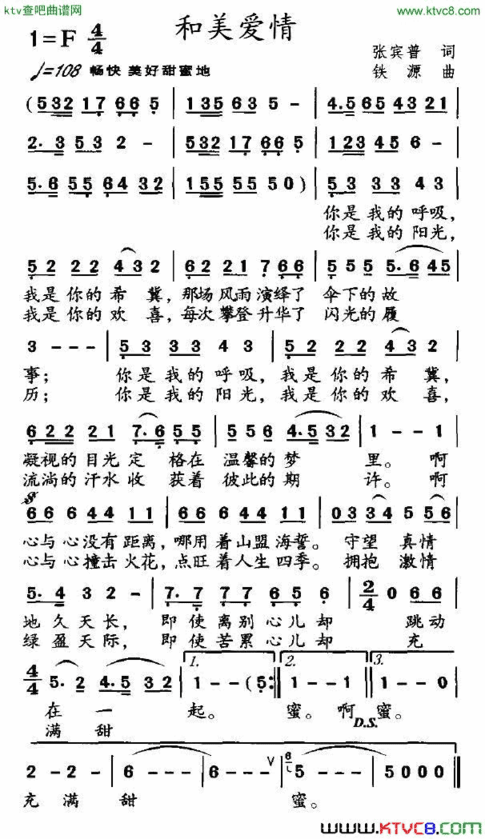 ktv查吧曲谱网
www.ktvc8.com
和美爱情
1=F 4/4
张宾普 词
♩=108 畅快 美好甜蜜地
铁源 曲
(532 17 66 5 | 135 63 5 - | 4.5 65 43 21 |
2. 3 5 3 2 - | 532 17 66 5 | 123 45 6 - |
5.6 55 64 32 | 155 55 50) | 5 3 3 3 4 3 |
你是我的呼吸,
你是我的阳光,
5 2 2 2 432 | 62 21 766 | 55 5 5. 645 |
我是你的希冀,那场风雨演绎了 伞下的故
我是你的欢喜,每次攀登升华了 闪光的履
3 - - - | 5 3 3 3 4 3 | 5 2 2 2 4 3 2 |
事; 你是我的呼吸,我是你的希冀,
历; 你是我的阳光,我是你的欢喜,
6 22 21 7.6 | 55 6 4.5 32 | 1 - - 1 |
凝视的目光定 格在 温馨的梦 里。啊
流淌的汗水收 获着 彼此的期 许。啊
66 644 11 | 66 644 11 | 03 34 55 |
心与心没有距离,哪用着山盟海誓。守望 真情
心与心撞击火花,点旺着人生四季。拥抱 激情
5. 4 32 - | 7. 7 77 65 6 | 2/4 0 66 |
地久天长, 即使离别心儿却 跳动
绿盈天际, 即使苦累心儿却 充
4/4 5. 2 4.5 32 | 1 - - (5 :| 1 - - 1 | 1 - - 0 |
1.
2.
3.
在一 起。 蜜。啊蜜。
满甜
D.S.
2 - 2 - | 6 - - 6 | 6 - - - | 5 - - - | 5 0 0 0 ‖
充 满 甜 蜜。
www.KTVC8.com